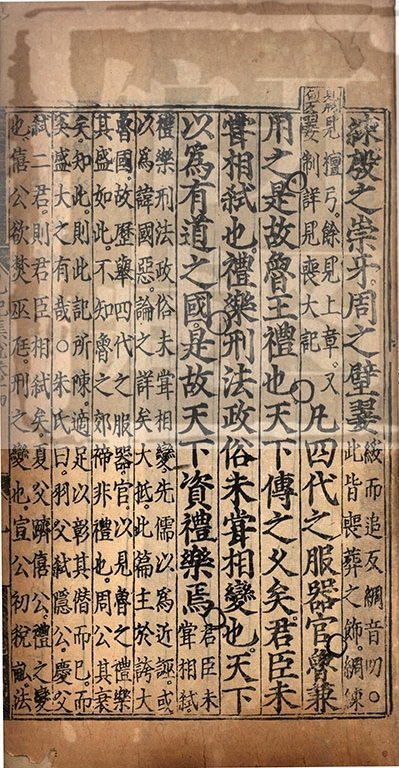 練殷之崇牙周之璧翣
綏而追反綢音叨○
此皆喪葬之飾綢練
見檀弓餘見上章又
制詳見喪大記
凡四代之服器官魯兼
用之是故魯王禮也天下傳之久矣君臣未
嘗相弑也禮樂刑法政俗未嘗相變也天下
以為有道之國是故天下資禮樂焉
君臣未
嘗相弑
禮樂刑法政俗未嘗相變先儒以為近誣或
以為諱國惡論之詳矣大抵此篇主於誇大
魯國故歷舉四代之服器官以見魯之禮樂
其盛如此不知魯之郊禘非禮也周公其衰
矣知此則此記所陳適足以彰其僭而已而
奚盛大之有哉○朱氏曰羽父弑隱公慶父
弑二君則君臣相弑矣夏父躋僖公禮之變
也僖公欲焚巫尫刑之變也宣公初稅畝法